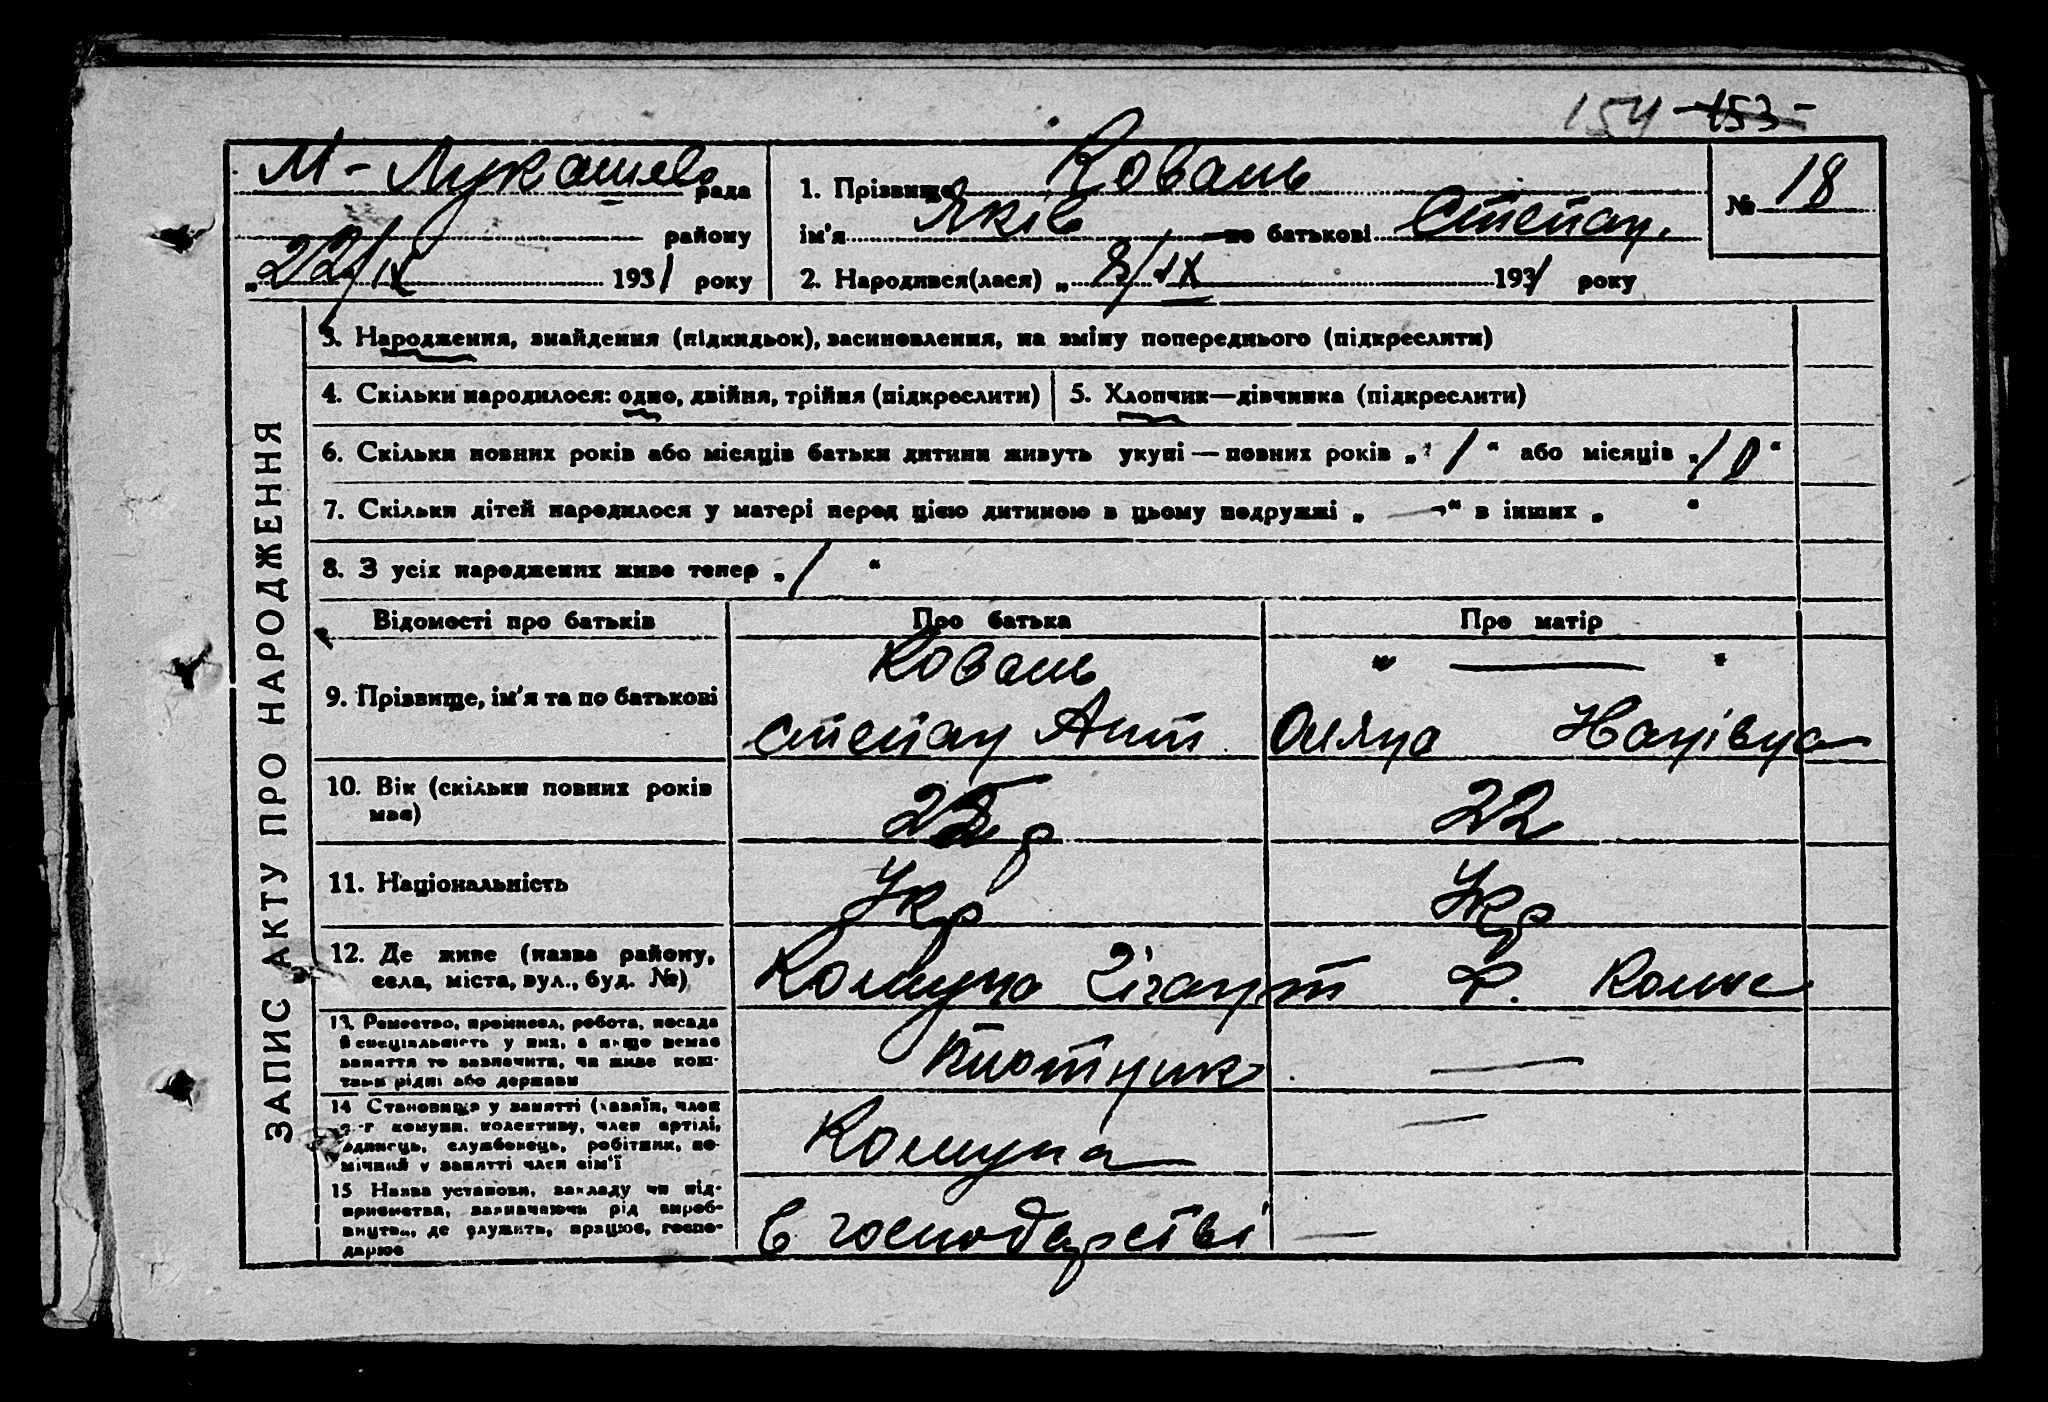 154 153
М-Лукашево рада
району
„22/IX 1931 року
1. Прізвище Коваль
ім'я Яків по батькові Степан.
2. Народився(лася) „8/IX 1931 року
№ 18
ЗАПИС АКТУ ПРО НАРОДЖЕННЯ
3. Народження, знайдення (підкидьок), засиновлення, на зміну попереднього (підкреслити)
4. Скільки народилося: одно, двійня, трійня (підкреслити)
5. Хлопчик—дівчинка (підкреслити)
6. Скільки повних років або місяців батьки дитини живуть укупі — повних років „1“ або місяців „10“
7. Скільки дітей народилося у матері перед цією дитиною в цьому подружжі „—“ в інших „ “
8. З усіх народжених живе тепер „1“
Відомості про батьків Про батька Про матір
Коваль „ — “
9. Прізвище, ім'я та по батькові
Степан Ант Оляна
10. Вік (скільки повних років
має)
р 22
11. Національність Укр Укр
12. Де живе (назва району,
села, міста, вул., буд. №)
Комуна Гігант
13. Ремество, промисел, робота, посада
й спеціальність у них, а якщо немає
заняття то зазначити, чи живе кош-
тами рідні або держави
Плотник —
14 Становище у занятті (хазяїн, член
с.-г комуни, колективу, член артілі,
одинець, службовець, робітник, по-
мічний у занятті член сім'ї
Комуна —
15 Назва установи, закладу чи під-
приємства, зазначаючи рід вироб-
ництва, де служить, працює, госпо-
дарює
в господарстві —